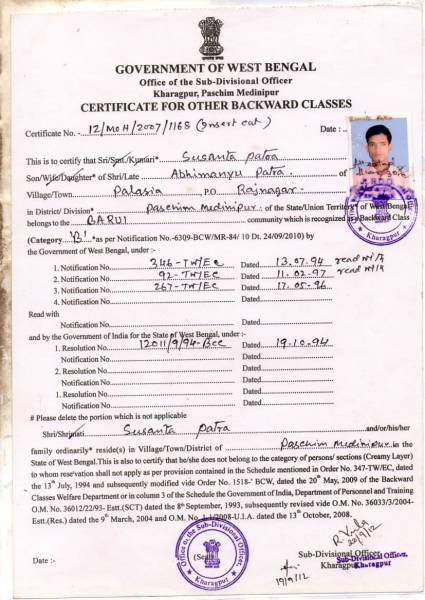 GOVERNMENT OF WEST BENGAL
Office of the Sub-Divisional Officer
Kharagpur, Paschim Medinipur
CERTIFICATE FOR OTHER BACKWARD CLASSES
Certificate No. - 12/MOH/2007/1168 (Insert cat) Date : ..
This is to certify that Sri/Smt./Kumari* Susanta Patra
Son/Wife/Daughter* of Shri/Late Abhimanyu Patra of
Village/Town Palasia P.O. Rajnagar
in District/ Division* Paschim Medinipur of the State/Union Territory of West Bengal
belongs to the BARUI community which is recognized as Backward Class
(Category 'B' *as per Notification No.-6309-BCW/MR-84/ 10 Dt. 24/09/2010)
the Government of West Bengal, under :-
1. Notification No. 346-TW/EC Dated 13.07.94 read wt/
2. Notification No. 92-TW/EC Dated 11.02.97 read wt/
3. Notification No. 267-TW/EC Dated 17.05.96
4. Notification No. Dated
Read with
Notification No. Dated
and by the Government of India for the State of West Bengal, under :-
1. Resolution No. 12011/9/94-BCC Dated 19.10.94
Notification No. Dated
2. Resolution No. Dated
Notification No. Dated
1. Resolution No. Dated
Notification No. Dated
# Please delete the portion which is not applicable
Shri/Shrimati Susanta Patra and/or/his/her
family ordinarily* reside(s) in Village/Town/District of Paschim Medinipur in the
State of West Bengal. This is also to certify that he/she does not belong to the category of persons/ sections (Creamy Layer)
to whom reservation shall not apply as per provision contained in the Schedule mentioned in Order No. 347-TW/EC, dated
the 13th July, 1994 and subsequently modified vide Order No. 1518-' BCW, dated the 20th May, 2009 of the Backward
Classes Welfare Department or in column 3 of the Schedule the Government of India, Department of Personnel and Training
O.M. No. 36012/22/93- Estt.(SCT) dated the 8th September, 1993, subsequently revised vide O.M. No. 36033/3/2004-
Estt.(Res.) dated the 9th March, 2004 and O.M. No. /2008-U.I.A. dated the 13th October, 2008.
Office of the Sub-Divisional Officer
Kharagpur
20/9/12
Date :- (Seal) Sub-Divisional Officer,
Sub-Divisional Officer
19/9/12 Kharagpur
Kharagpur